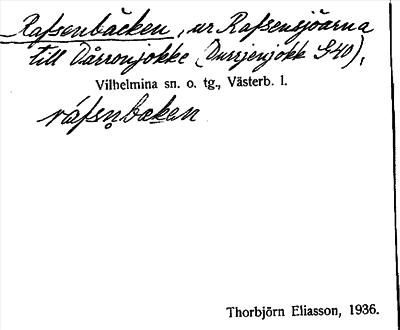 Rafsenbäcken, ur Rafsensjöarna
till Dårronjokke (Durrjenjokk G40),
Vilhelmina sn. o. tg., Västerb. l.
ráfsn̥baken
Thorbjörn Eliasson, 1936.